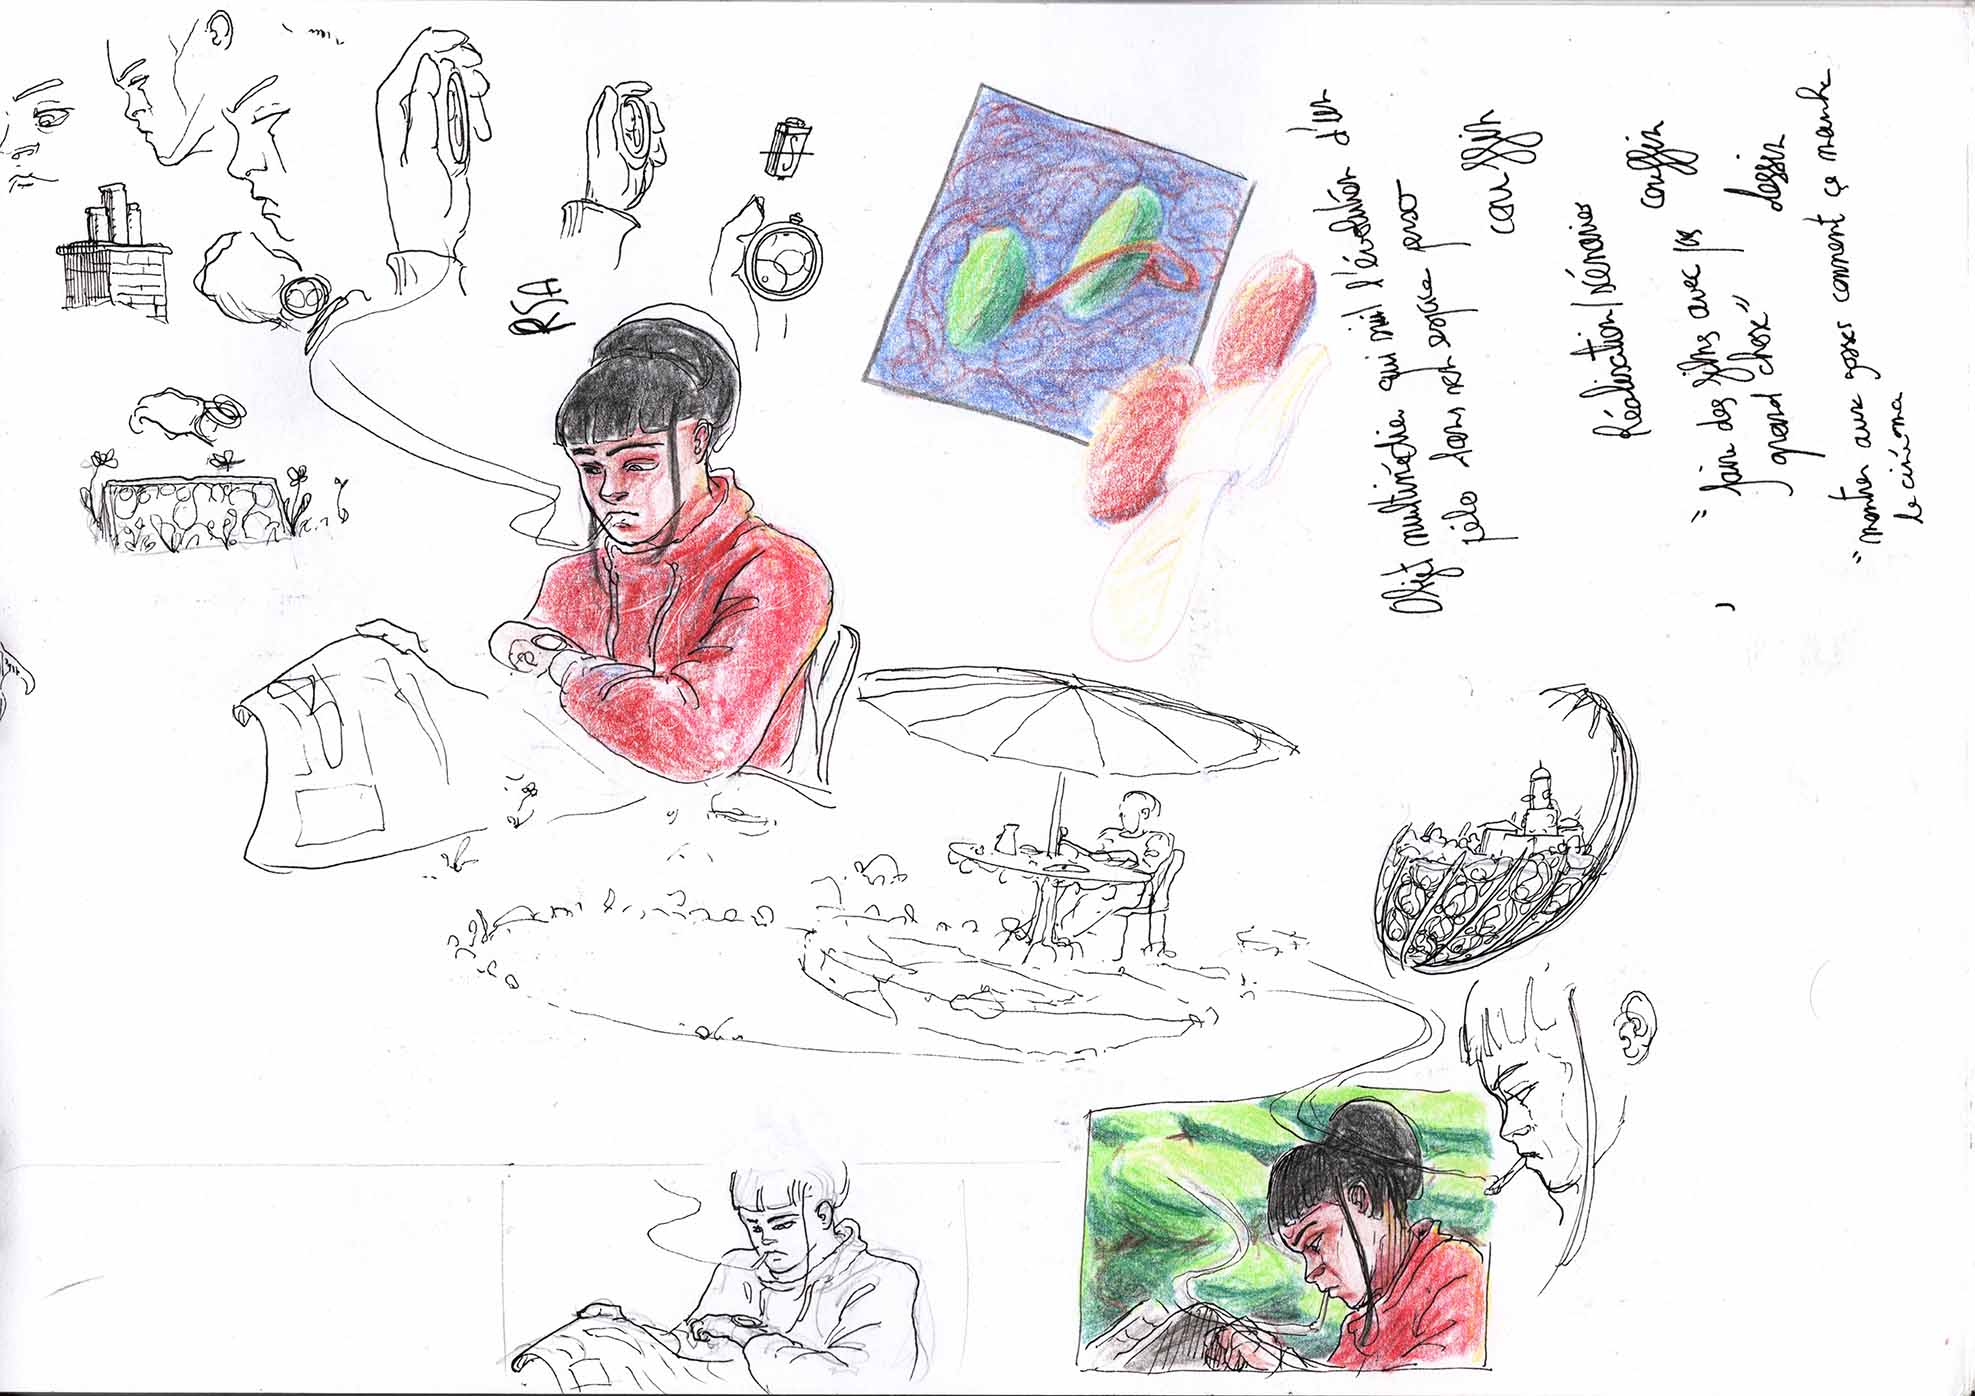 RSA
Objet multimédia qui suit l'évolution d'un
dans espace perso
coussin
Réalisation/scénarios
coussin
"faire des films avec pas
grand chose"
dessin
"montrer aux gosses comment ça marche
le cinéma